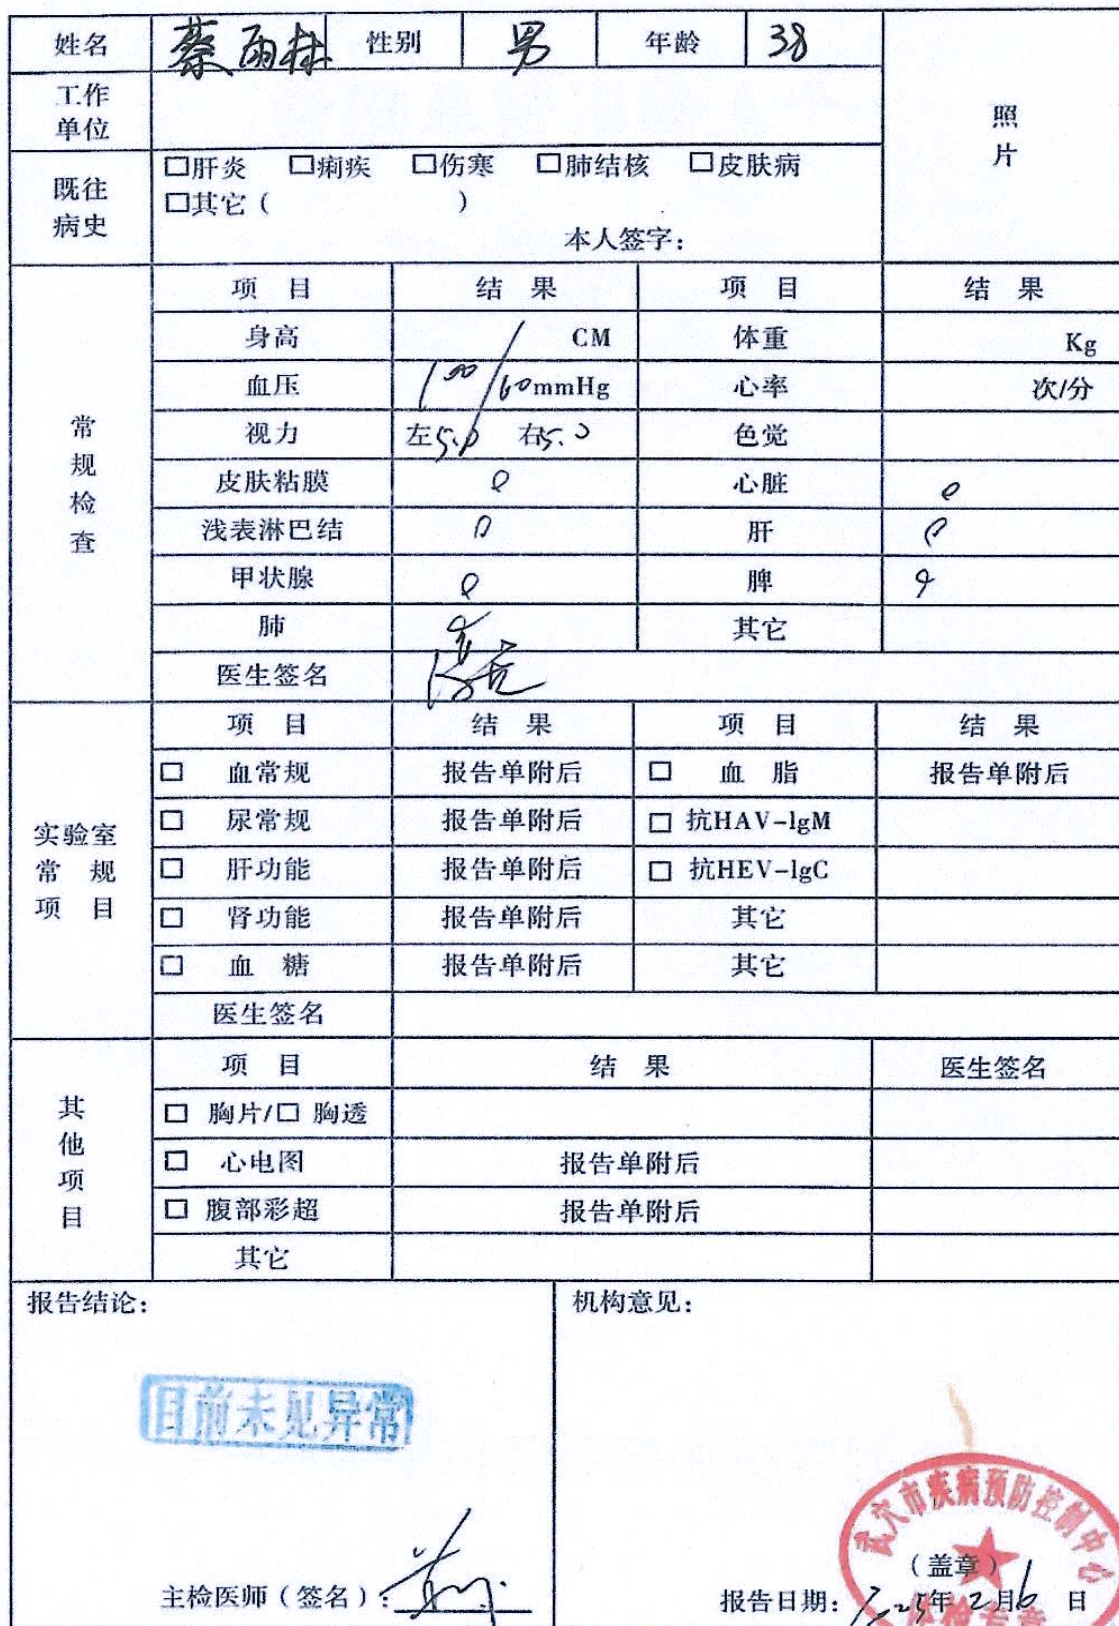 姓名 蔡雨林 性别 男 年龄 38
照片
工作单位
既往病史
□肝炎 □痢疾 □伤寒 □肺结核 □皮肤病
□其它（ ）
本人签字：
常规检查
项 目 结 果 项 目 结 果
身高 CM 体重 Kg
血压 100/60mmHg 心率 次/分
视力 左5.0 右5.0 色觉
皮肤粘膜 0 心脏 0
浅表淋巴结 0 肝 0
甲状腺 0 脾
肺 其它
医生签名
实验室常规项目
项 目 结 果 项 目 结 果
□ 血常规 报告单附后 □ 血 脂 报告单附后
□ 尿常规 报告单附后 □ 抗HAV-lgM
□ 肝功能 报告单附后 □ 抗HEV-lgC
□ 肾功能 报告单附后 其它
□ 血 糖 报告单附后 其它
医生签名
其他项目
项 目 结 果 医生签名
□ 胸片/□ 胸透
□ 心电图 报告单附后
□ 腹部彩超 报告单附后
其它
报告结论： 机构意见：
目前未见异常
武穴市疾病预防控制中心
（盖章）
主检医师（签名）： 报告日期：2025年2月6日
体检专章